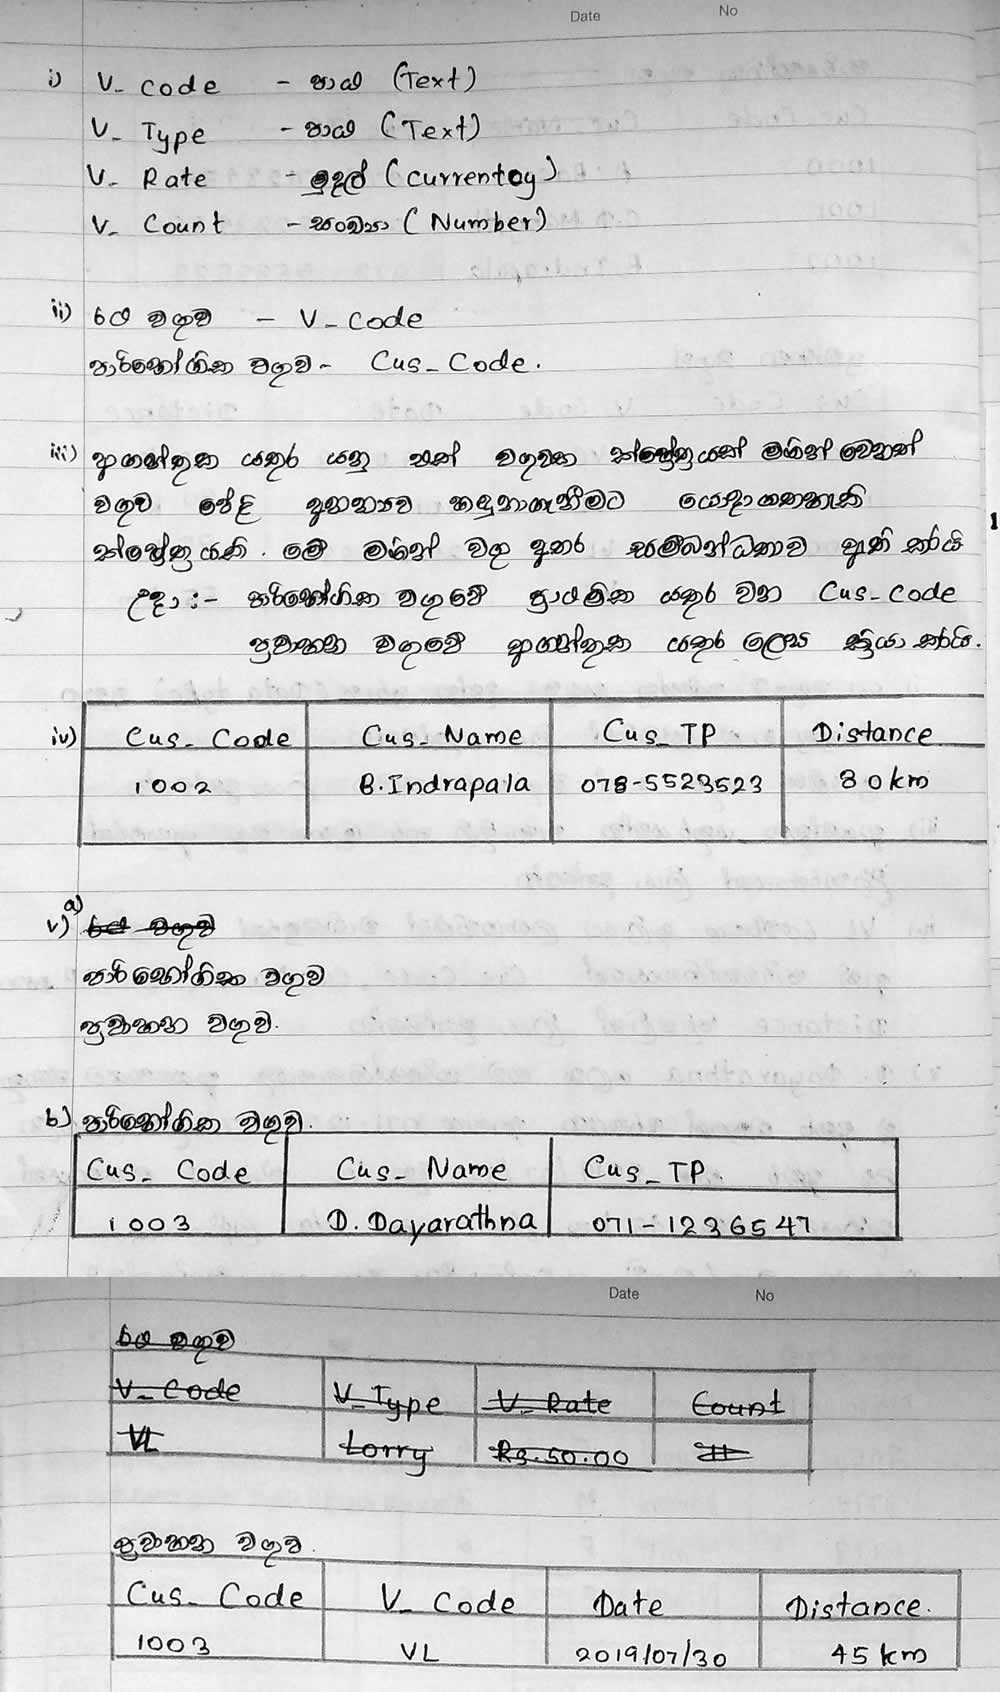 Date No
i) V_ code - පාඨ (Text)
V_ Type - පාඨ (Text)
V_ Rate - මුදල් (currentcy)
V_ Count - සංඛ්‍යා (Number)
ii) රථ වගුව - V_ Code
පාරිභෝගික වගුව - Cus_ Code.
iii) ආගන්තුක යතුර යනු එක් වගුවක ක්ෂේත්‍රයක් මගින් වෙනත්
වගුව පේළි අනන්‍යව හඳුනාගැනීමට යොදාගතහැකි
ක්ෂේත්‍රයකි. මේ මගින් වගු අතර සම්බන්ධතාව ඇති කරයි
උදා :- පාරිභෝගික වගුවේ ප්‍රාථමික යතුර වන Cus_code
ප්‍රවාහන වගුවේ ආගන්තුක යතුර ලෙස ක්‍රියා කරයි.
iv) Cus_ Code Cus_ Name Cus_ TP Distance
1002 B.Indrapala 078-5523523 80km
a)
v) රථ වගුව
පාරිභෝගික වගුව
ප්‍රවාහන වගුව.
b) පාරිභෝගික වගුව.
Cus_ Code Cus_ Name Cus_ TP.
1003 D. Dayarathna 071-1236547
Date No
රථ වගුව
V_ Code V_ Type V_ Rate Count
VL Lorry Rs.50.00
ප්‍රවාහන වගුව.
Cus_ Code V_ Code Date Distance.
1003 VL 2019/07/30 45 km